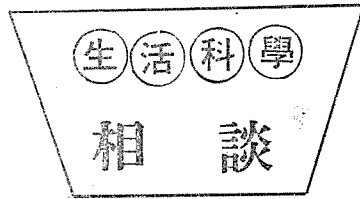 生活科學
相談